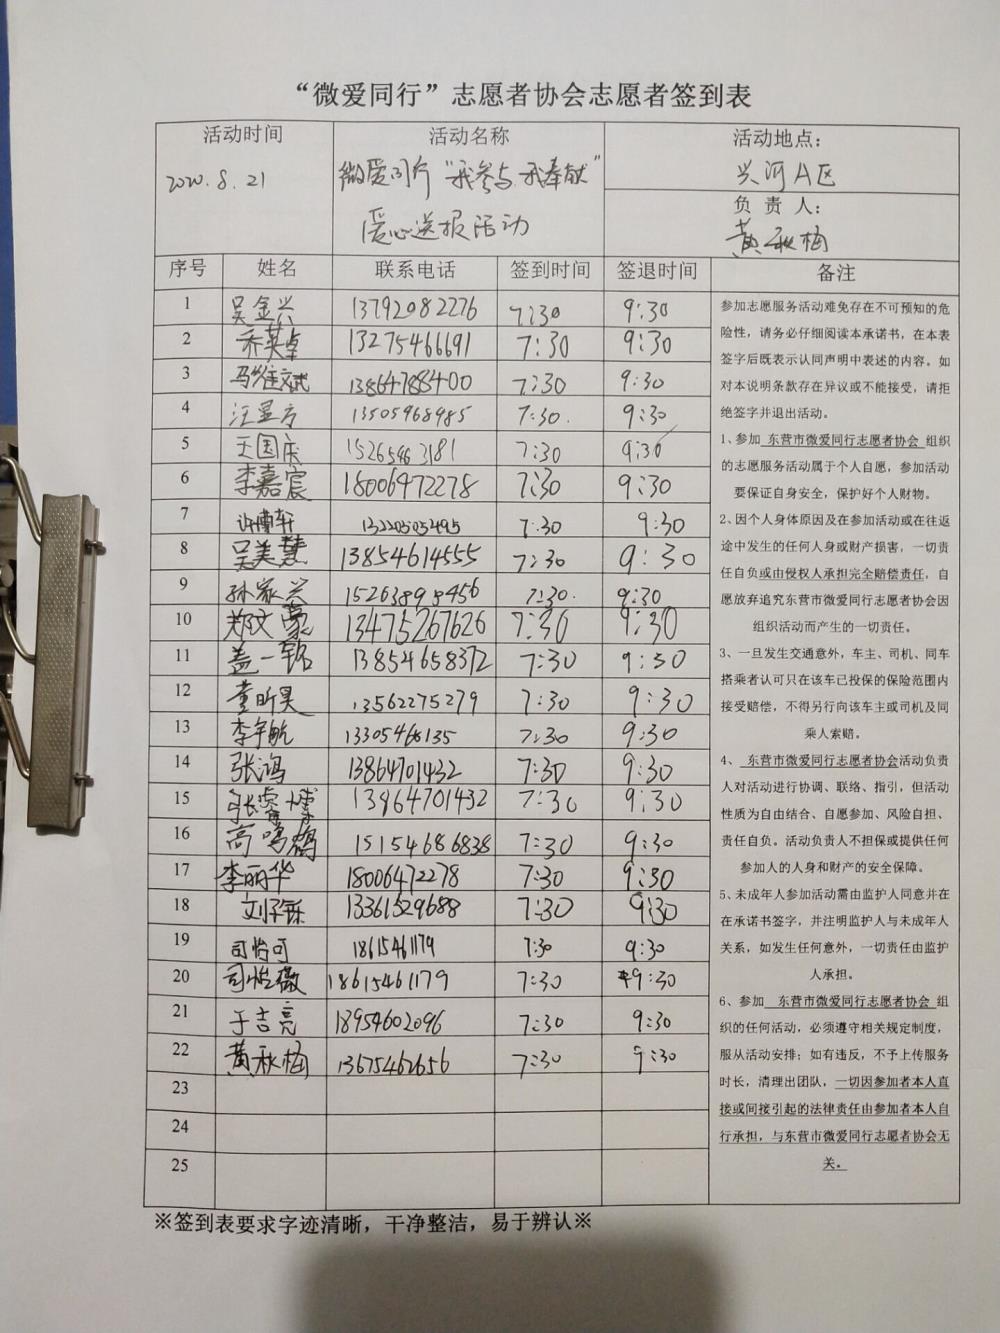 “微爱同行”志愿者协会志愿者签到表
活动时间
2020.8.21
活动名称
微爱同行“我参与.我奉献”
爱心送报活动
活动地点：
兴河A区
负 责 人：
黄秋梅
序号 姓名 联系电话 签到时间 签退时间 备注
1 吴金兴 13792082276 7:30 9:30
2 乔英卓 13275466691 7:30 9:30
3 13864788400 7:30 9:30
4 汪显方 13505968985 7:30. 9:30
5 王国庆 15265463181 7:30 9:30
6 李嘉宸 18006472278 7:30 9:30
7 7:30 9:30
8 吴美慧 13854614555 7:30 9:30
9 孙家兴 15263898456 7:30. 9:30
10 郑文豪 13475267626 7:30 9:30
11 盖一铭 13854658372 7:30 9:30
12 董昕昊 13562275279 7:30 9:30
13 李宇航 13305468135 7:30 9:30
14 张鸿 13864701432 7:30 9:30
15 张睿博 13864701432 7:30 9:30
16 高鸣鸽 15154686838 7:30 9:30
17 李丽华 18006472278 7:30 9:30
18 刘子铄 13361529688 7:30 9:30
19 司怡可 18615461179 7:30 9:30
20 司怡薇 18615461179 7:30 9:30
21 于吉亮 18954602096 7:30 9:30
22 黄秋梅 13675462656 7:30 9:30
23
24
25
参加志愿服务活动难免存在不可预知的危
险性，请务必仔细阅读本承诺书，在本表
签字后既表示认同声明中表述的内容。如
对本说明条款存在异议或不能接受，请拒
绝签字并退出活动。
1、参加 东营市微爱同行志愿者协会 组织
的志愿服务活动属于个人自愿，参加活动
要保证自身安全，保护好个人财物。
2、因个人身体原因及在参加活动或在往返
途中发生的任何人身或财产损害，一切责
任自负或由侵权人承担完全赔偿责任，自
愿放弃追究东营市微爱同行志愿者协会因
组织活动而产生的一切责任。
3、一旦发生交通意外，车主、司机、同车
搭乘者认可只在该车已投保的保险范围内
接受赔偿，不得另行向该车主或司机及同
乘人索赔。
4、 东营市微爱同行志愿者协会活动负责
人对活动进行协调、联络、指引，但活动
性质为自由结合、自愿参加、风险自担、
责任自负。活动负责人不担保或提供任何
参加人的人身和财产的安全保障。
5、未成年人参加活动需由监护人同意并在
在承诺书签字，并注明监护人与未成年人
关系，如发生任何意外，一切责任由监护
人承担。
6、参加 东营市微爱同行志愿者协会 组
织的任何活动，必须遵守相关规定制度，
服从活动安排；如有违反，不予上传服务
时长，清理出团队，一切因参加者本人直
接或间接引起的法律责任由参加者本人自
行承担，与东营市微爱同行志愿者协会无
关。
※签到表要求字迹清晰，干净整洁，易于辨认※